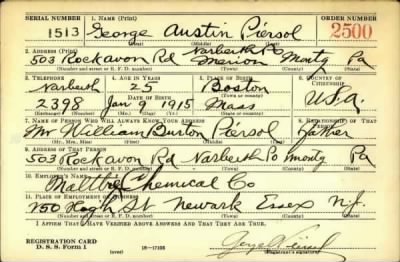 SERIAL NUMBER 1. NAME (Print) ORDER NUMBER
1513 George Austin Piersol 2500
(First) (Middle) (Last)
2. ADDRESS (Print) Narberth PO
503 Rockavon Rd Merion Montg Pa
(Number and street or R. F. D. number) (Town) (County) (State)
3. TELEPHONE 4. AGE IN YEARS 5. PLACE OF BIRTH 6. COUNTRY OF CITIZENSHIP
Narberth 25 Boston
DATE OF BIRTH (Town or county) U.S.A.
2398 Jan 9 1915 Mass
(Exchange) (Number) (Mo.) (Day) (Yr.) (State or country)
7. NAME OF PERSON WHO WILL ALWAYS KNOW YOUR ADDRESS 8. RELATIONSHIP OF THAT PERSON
Mr William Burton Piersol Father
(Mr., Mrs., Miss) (First) (Middle) (Last)
9. ADDRESS OF THAT PERSON
503 Rockavon Rd Narberth Po Montg Pa
(Number and street or R. F. D. number) (Town) (County) (State)
10. EMPLOYER'S NAME
Chemical Co
11. PLACE OF EMPLOYMENT OR BUSINESS
St Newark Essex N.J.
(Number and street or R. F. D. number) (Town) (County) (State)
I AFFIRM THAT I HAVE VERIFIED ABOVE ANSWERS AND THAT THEY ARE TRUE.
REGISTRATION CARD
D. S. S. Form 1 (over) 16—17105 (Registrant's signature)